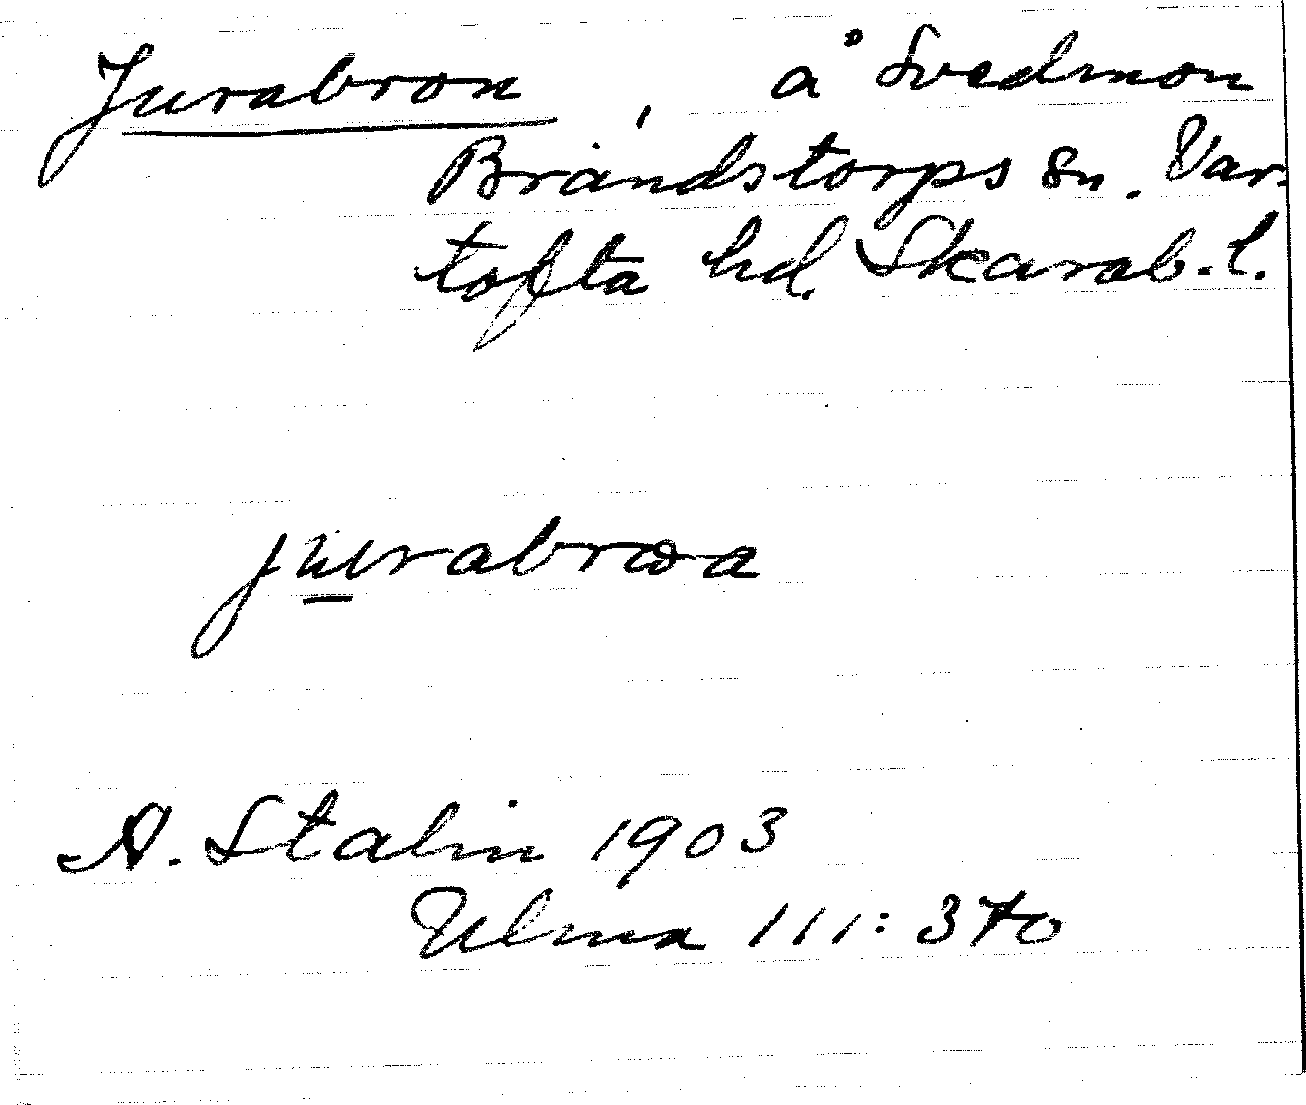 Jurabron, å Svedmon
Brandstorps sn. Var-
tofta hd. Skarab. l.
jurabrωa
A. Stalin 1903
Ulma 111:370